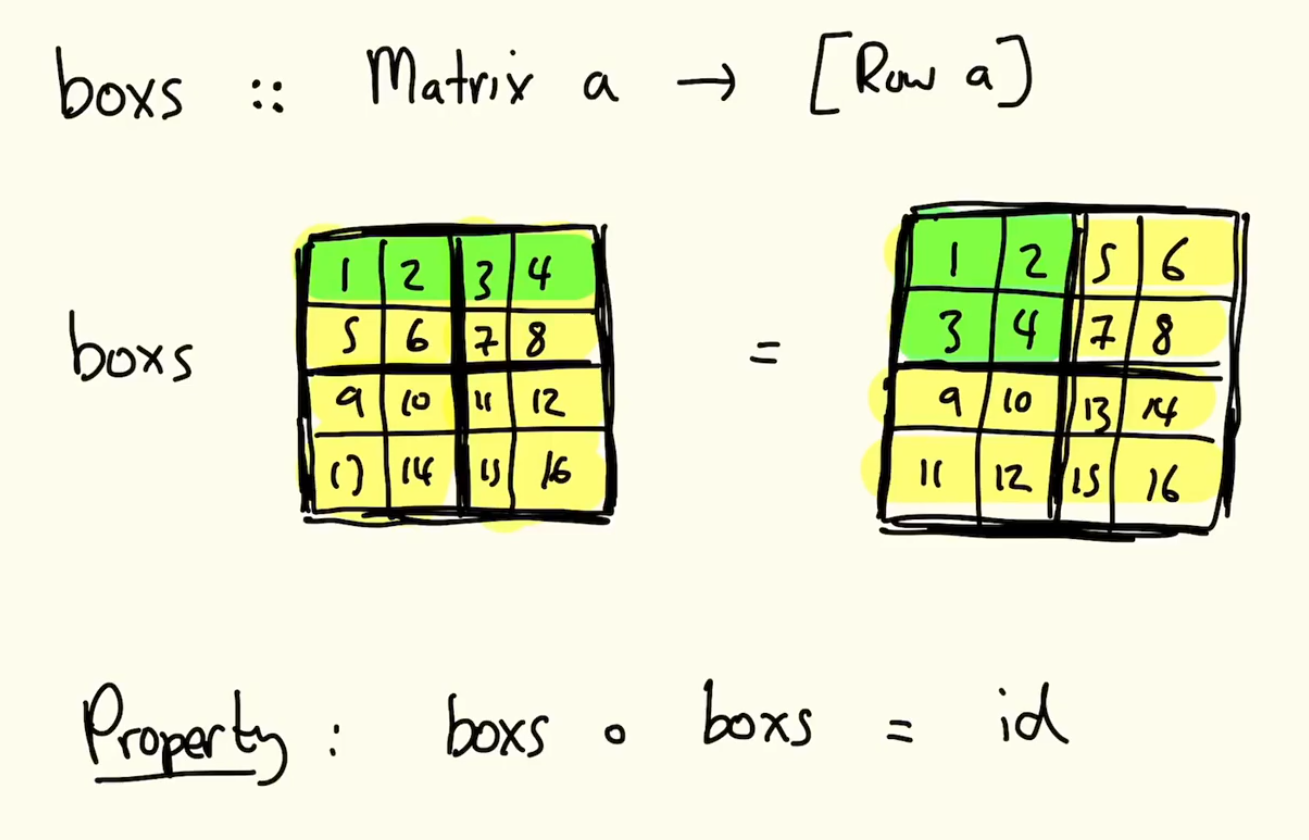 boxs :: Matrix a → [Row a]
1 2 3 4
5 6 7 8
9 10 11 12
13 14 15 16
boxs
=
1 2 5 6
3 4 7 8
9 10 13 14
11 12 15 16
Property : boxs ∘ boxs = id